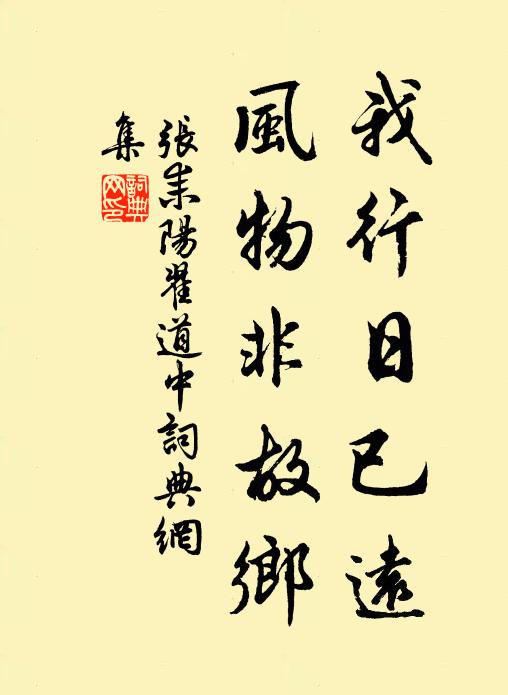 我行日已遠
風物非故鄉
張耒陽翟道中詞典網
集
詞典
网印